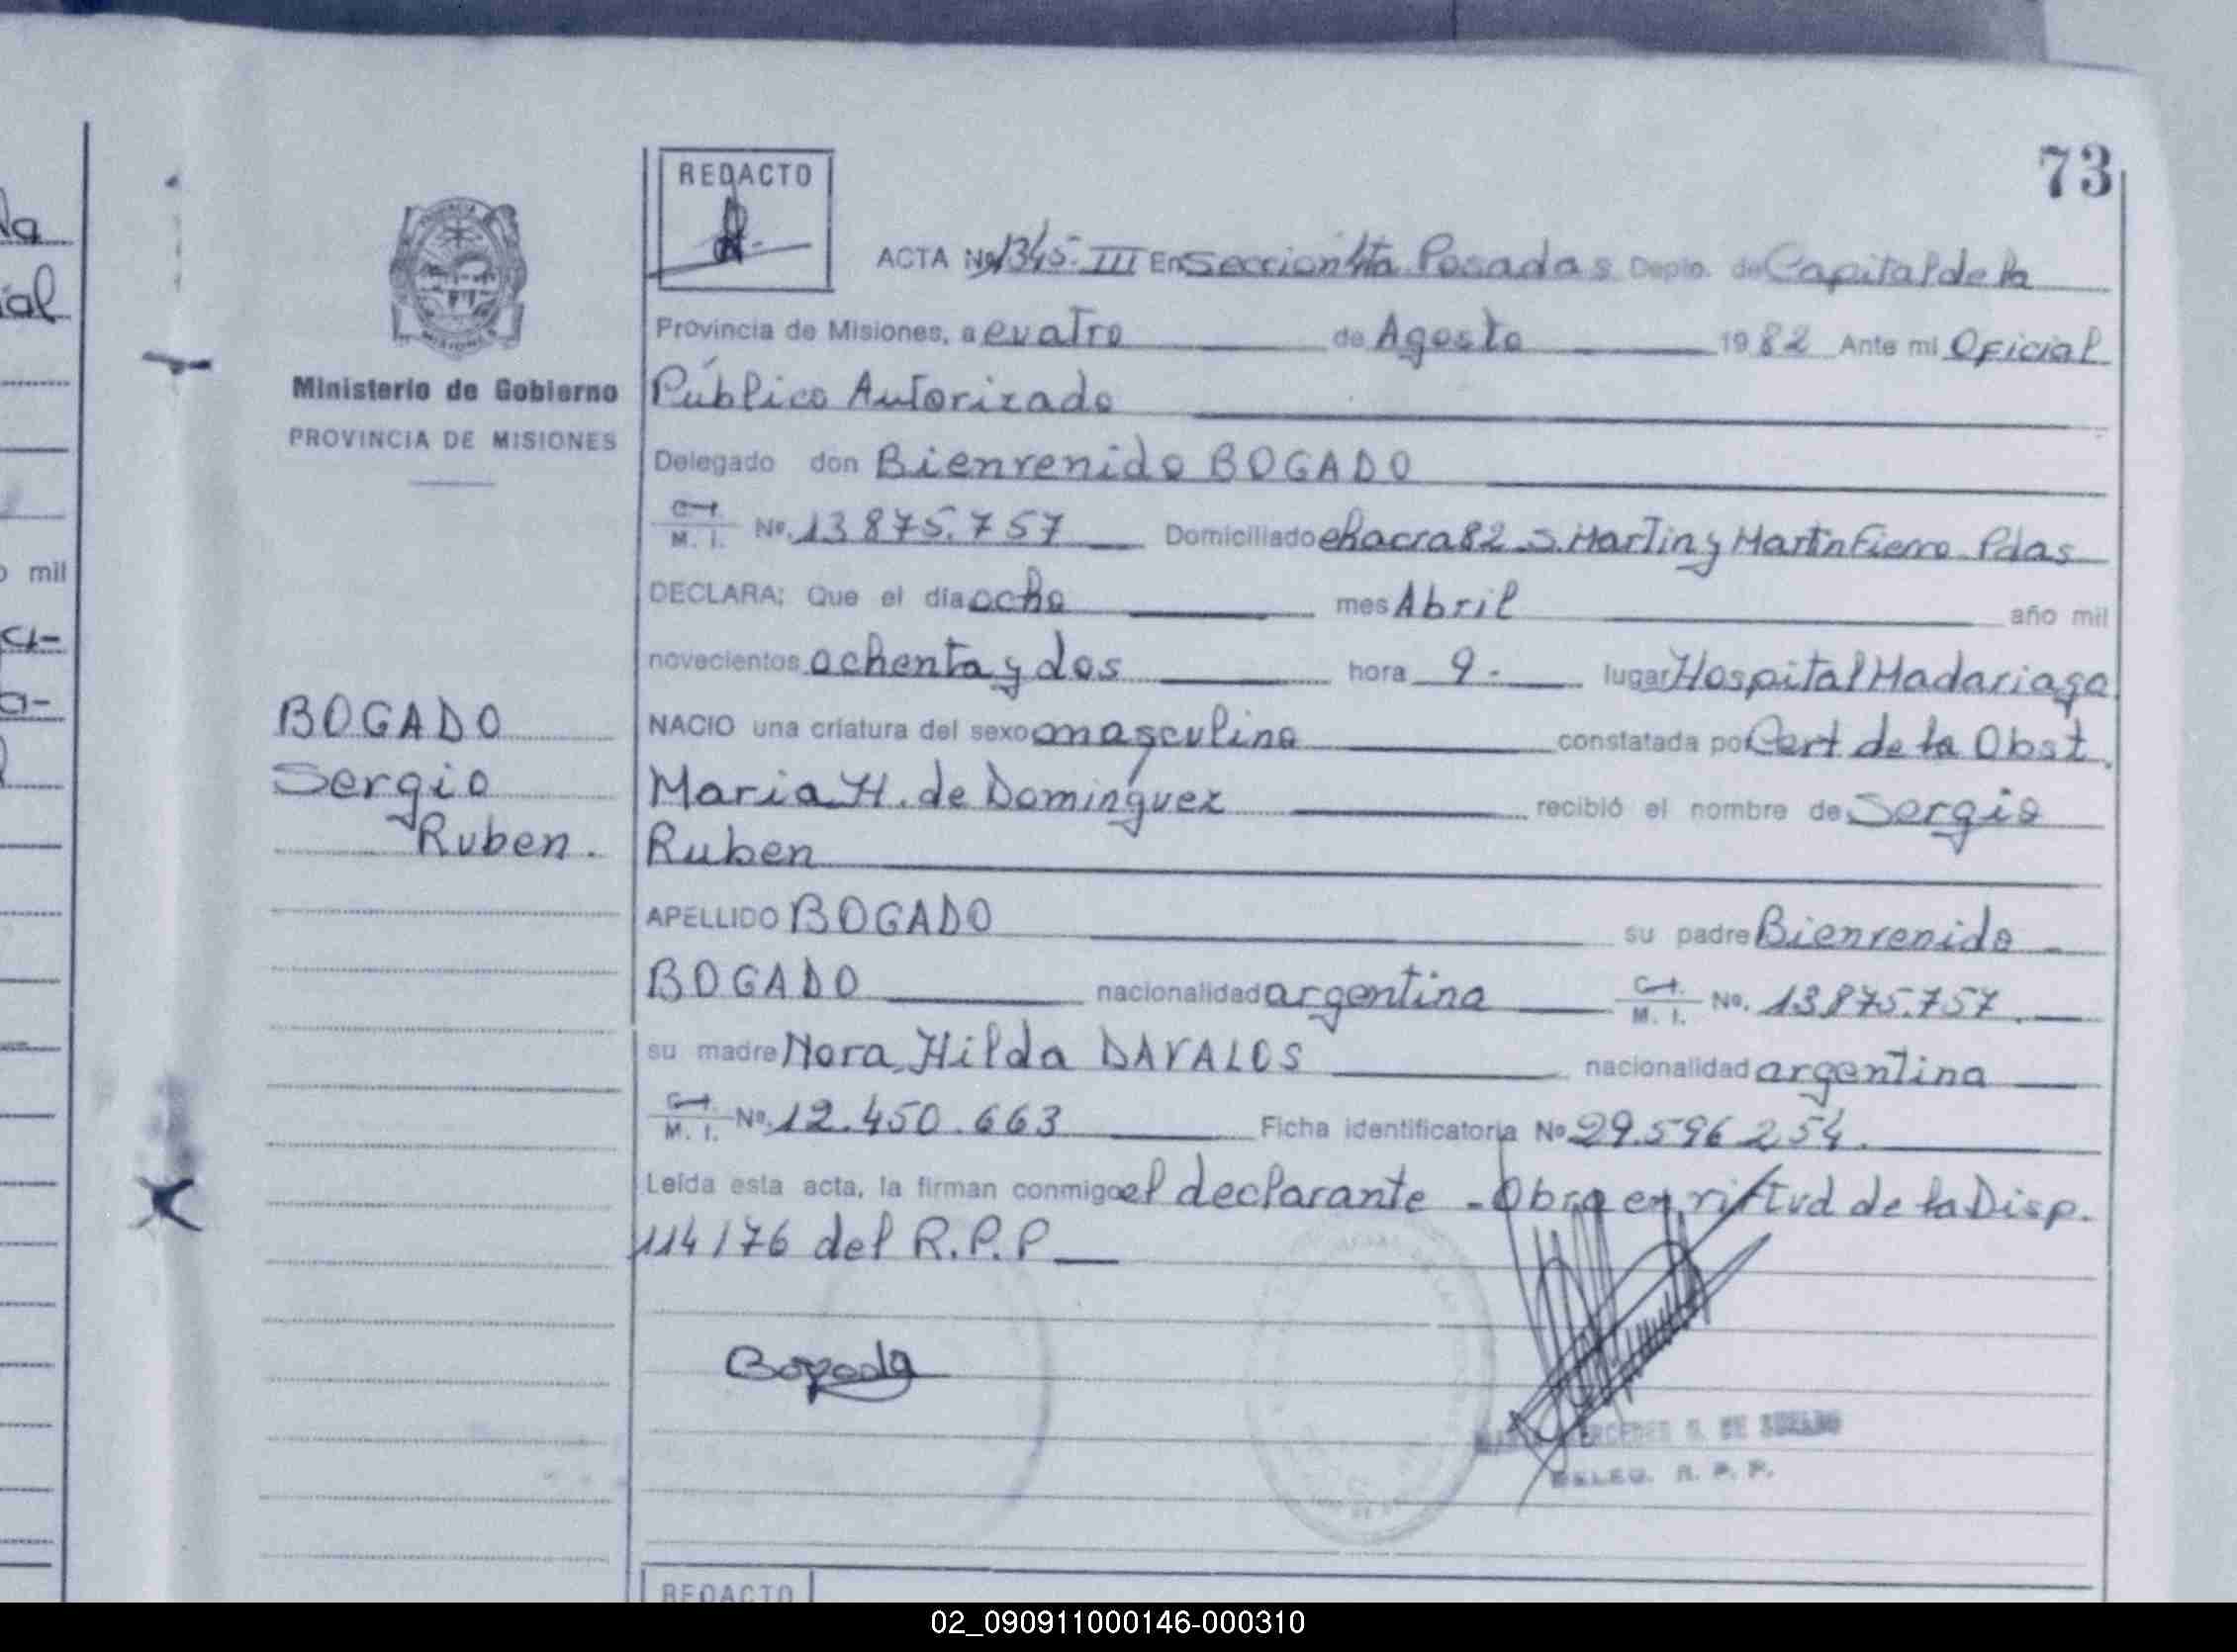 la
ial
o mil
73
REDACTO
ACTA Nº 1345. III En Seccion 4ta Posadas Depto. de Capital de la
Provincia de Misiones, a cuatro de Agosto 1982 Ante mi Oficial
Ministerio de Gobierno
PROVINCIA DE MISIONES
Público Autorizado
Delegado don Bienvenido BOGADO
C.I. M. I. Nº. 13875.757 Domiciliado chacra 82 S. Martin y Martin Fierro Pdas
DECLARA: Que el día ocho mes Abril año mil
novecientos ochenta y dos hora 9. lugar Hospital Madariaga
BOGADO
Sergio
Ruben.
NACIO una criatura del sexo masculino constatada por Cert de la Obst.
Maria H. de Domínguez recibió el nombre de Sergio
Ruben
APELLIDO BOGADO su padre Bienvenido
BOGADO nacionalidad argentina C.I. M. I. Nº. 13875.757.
su madre Nora Hilda DAVALOS nacionalidad argentina
C.I. M. I. Nº. 12.450.663 Ficha identificatoria Nº 29.596254.
Leída esta acta, la firman conmigo el declarante - Obra en virtud de la Disp.
114/76 del R.P.P
Bogado
MERCEDES G. DE
DELEG. R. P. P.
REDACTO
02_090911000146-000310